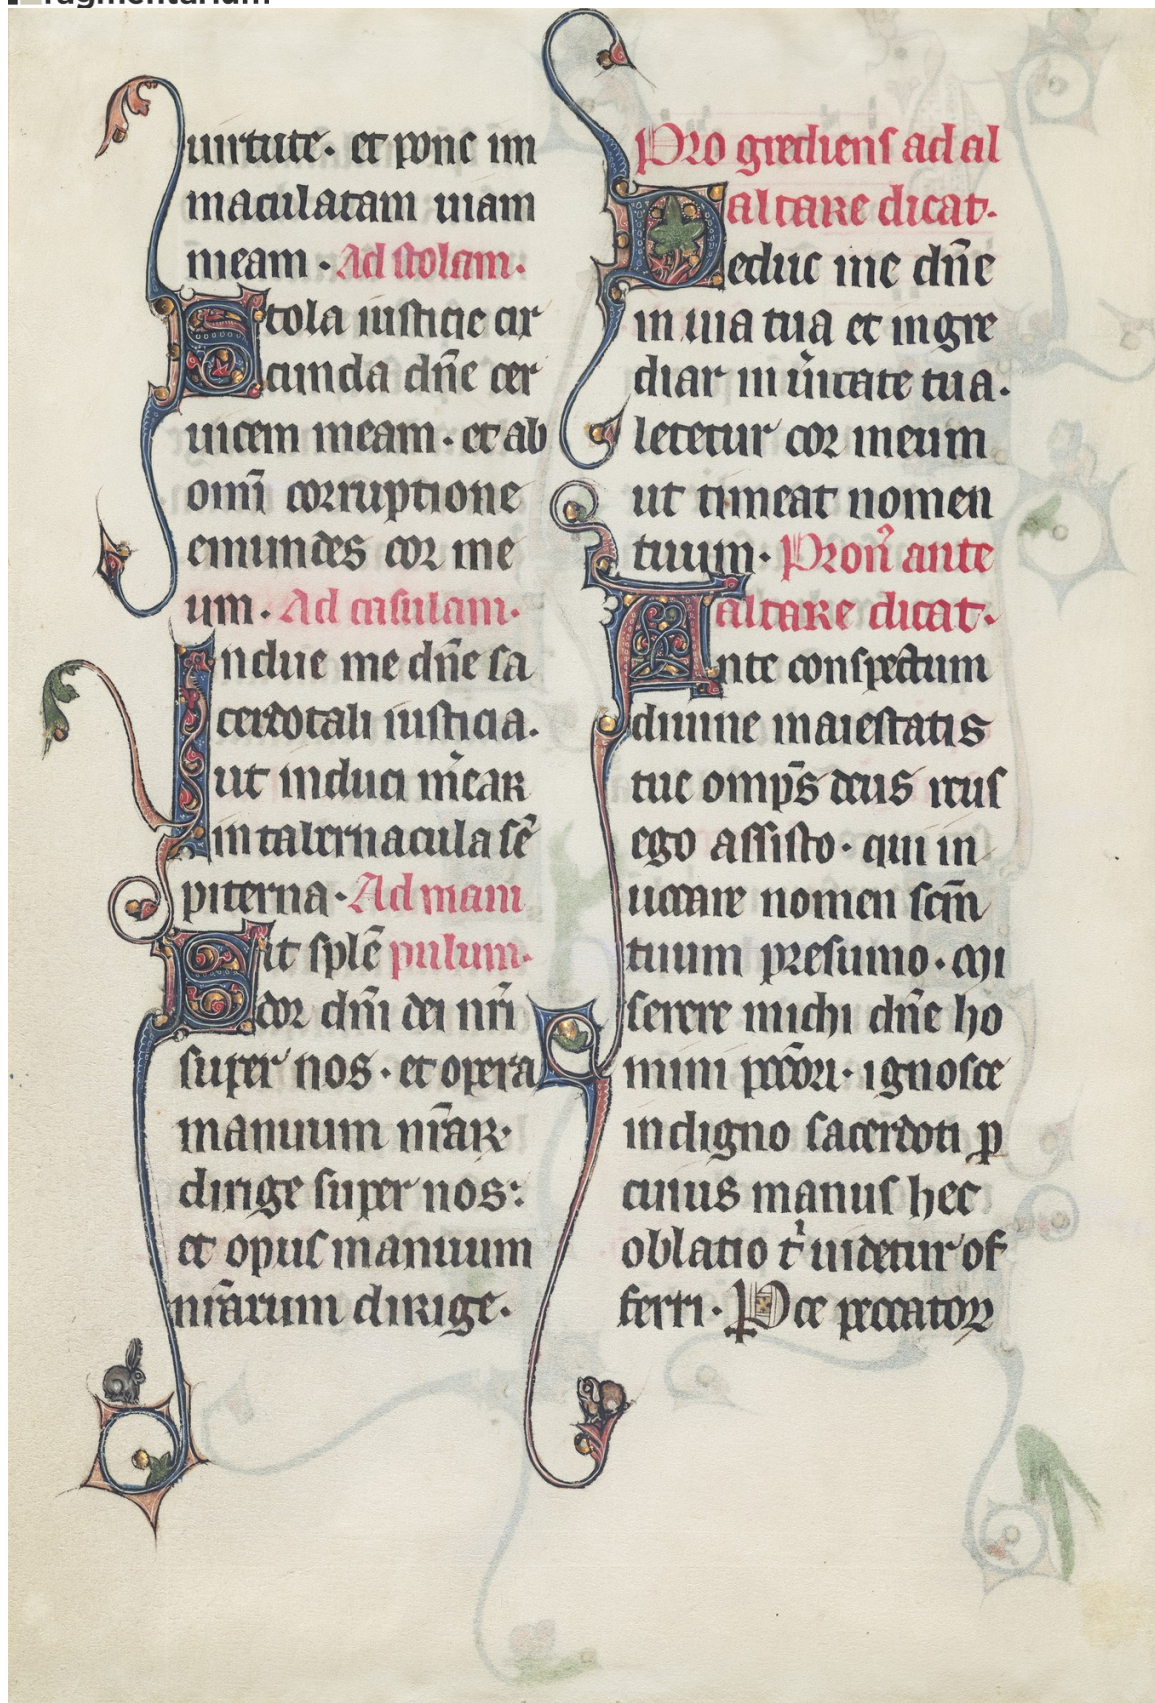 Fragmentarium
uirtute. et pone im
maculatam uiam
meam. Ad stolam.
Stola iusticie cir
cunda dn̄e cer
uicem meam. et ab
omī corruptione
emundes cor me
um. Ad casulam.
Indue me dn̄e sa
cerdotali iusticia.
ut induci mͥear
in tabernacula sē
piterna. Ad mani
Sit splē pulum.
dor dn̄i dei nr̄i
super nos. et opera
manuum nr̄aꝝ
dirige super nos:
et opus manuum
nr̄arum dirige.
Pro grediens ad al
altare dicat.
Deduc me dn̄e
in uia tua et ingre
diar in uͥitate tua.
letetur cor meum
ut timeat nomen
tuum. Pron̄ ante
altare dicat.
Ante conspectum
diuine maiestatis
tue omp̄s deus reus
ego assisto. qui in
uocare nomen scm̄
tuum presumo. Mi
serere michi dn̄e ho
mini pcc̄ori. ignosce
indigno sacerdoti ꝑ
cuius manus hec
oblatio tͥ uidetur of
ferri. Pce peccatoꝝ